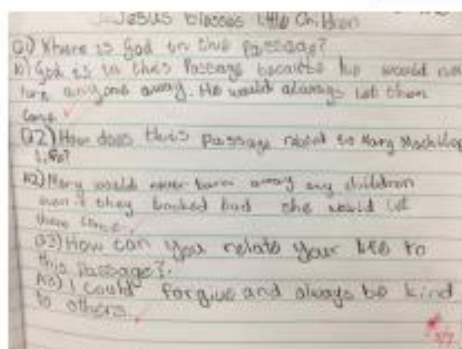 Jesus Blesses Little Children
Q1) Where is God in this passage?
A1) God is in this Passage because he would not
turn anyone away. He would always let them
come.
Q2) How does this passage relate to Mary Mackillop
life?
A2) Mary would never turn away any children
even if they looked bad she would let
them come.
Q3) How can you relate your life to
this passage?
A3) I could forgive and always be kind
to others.